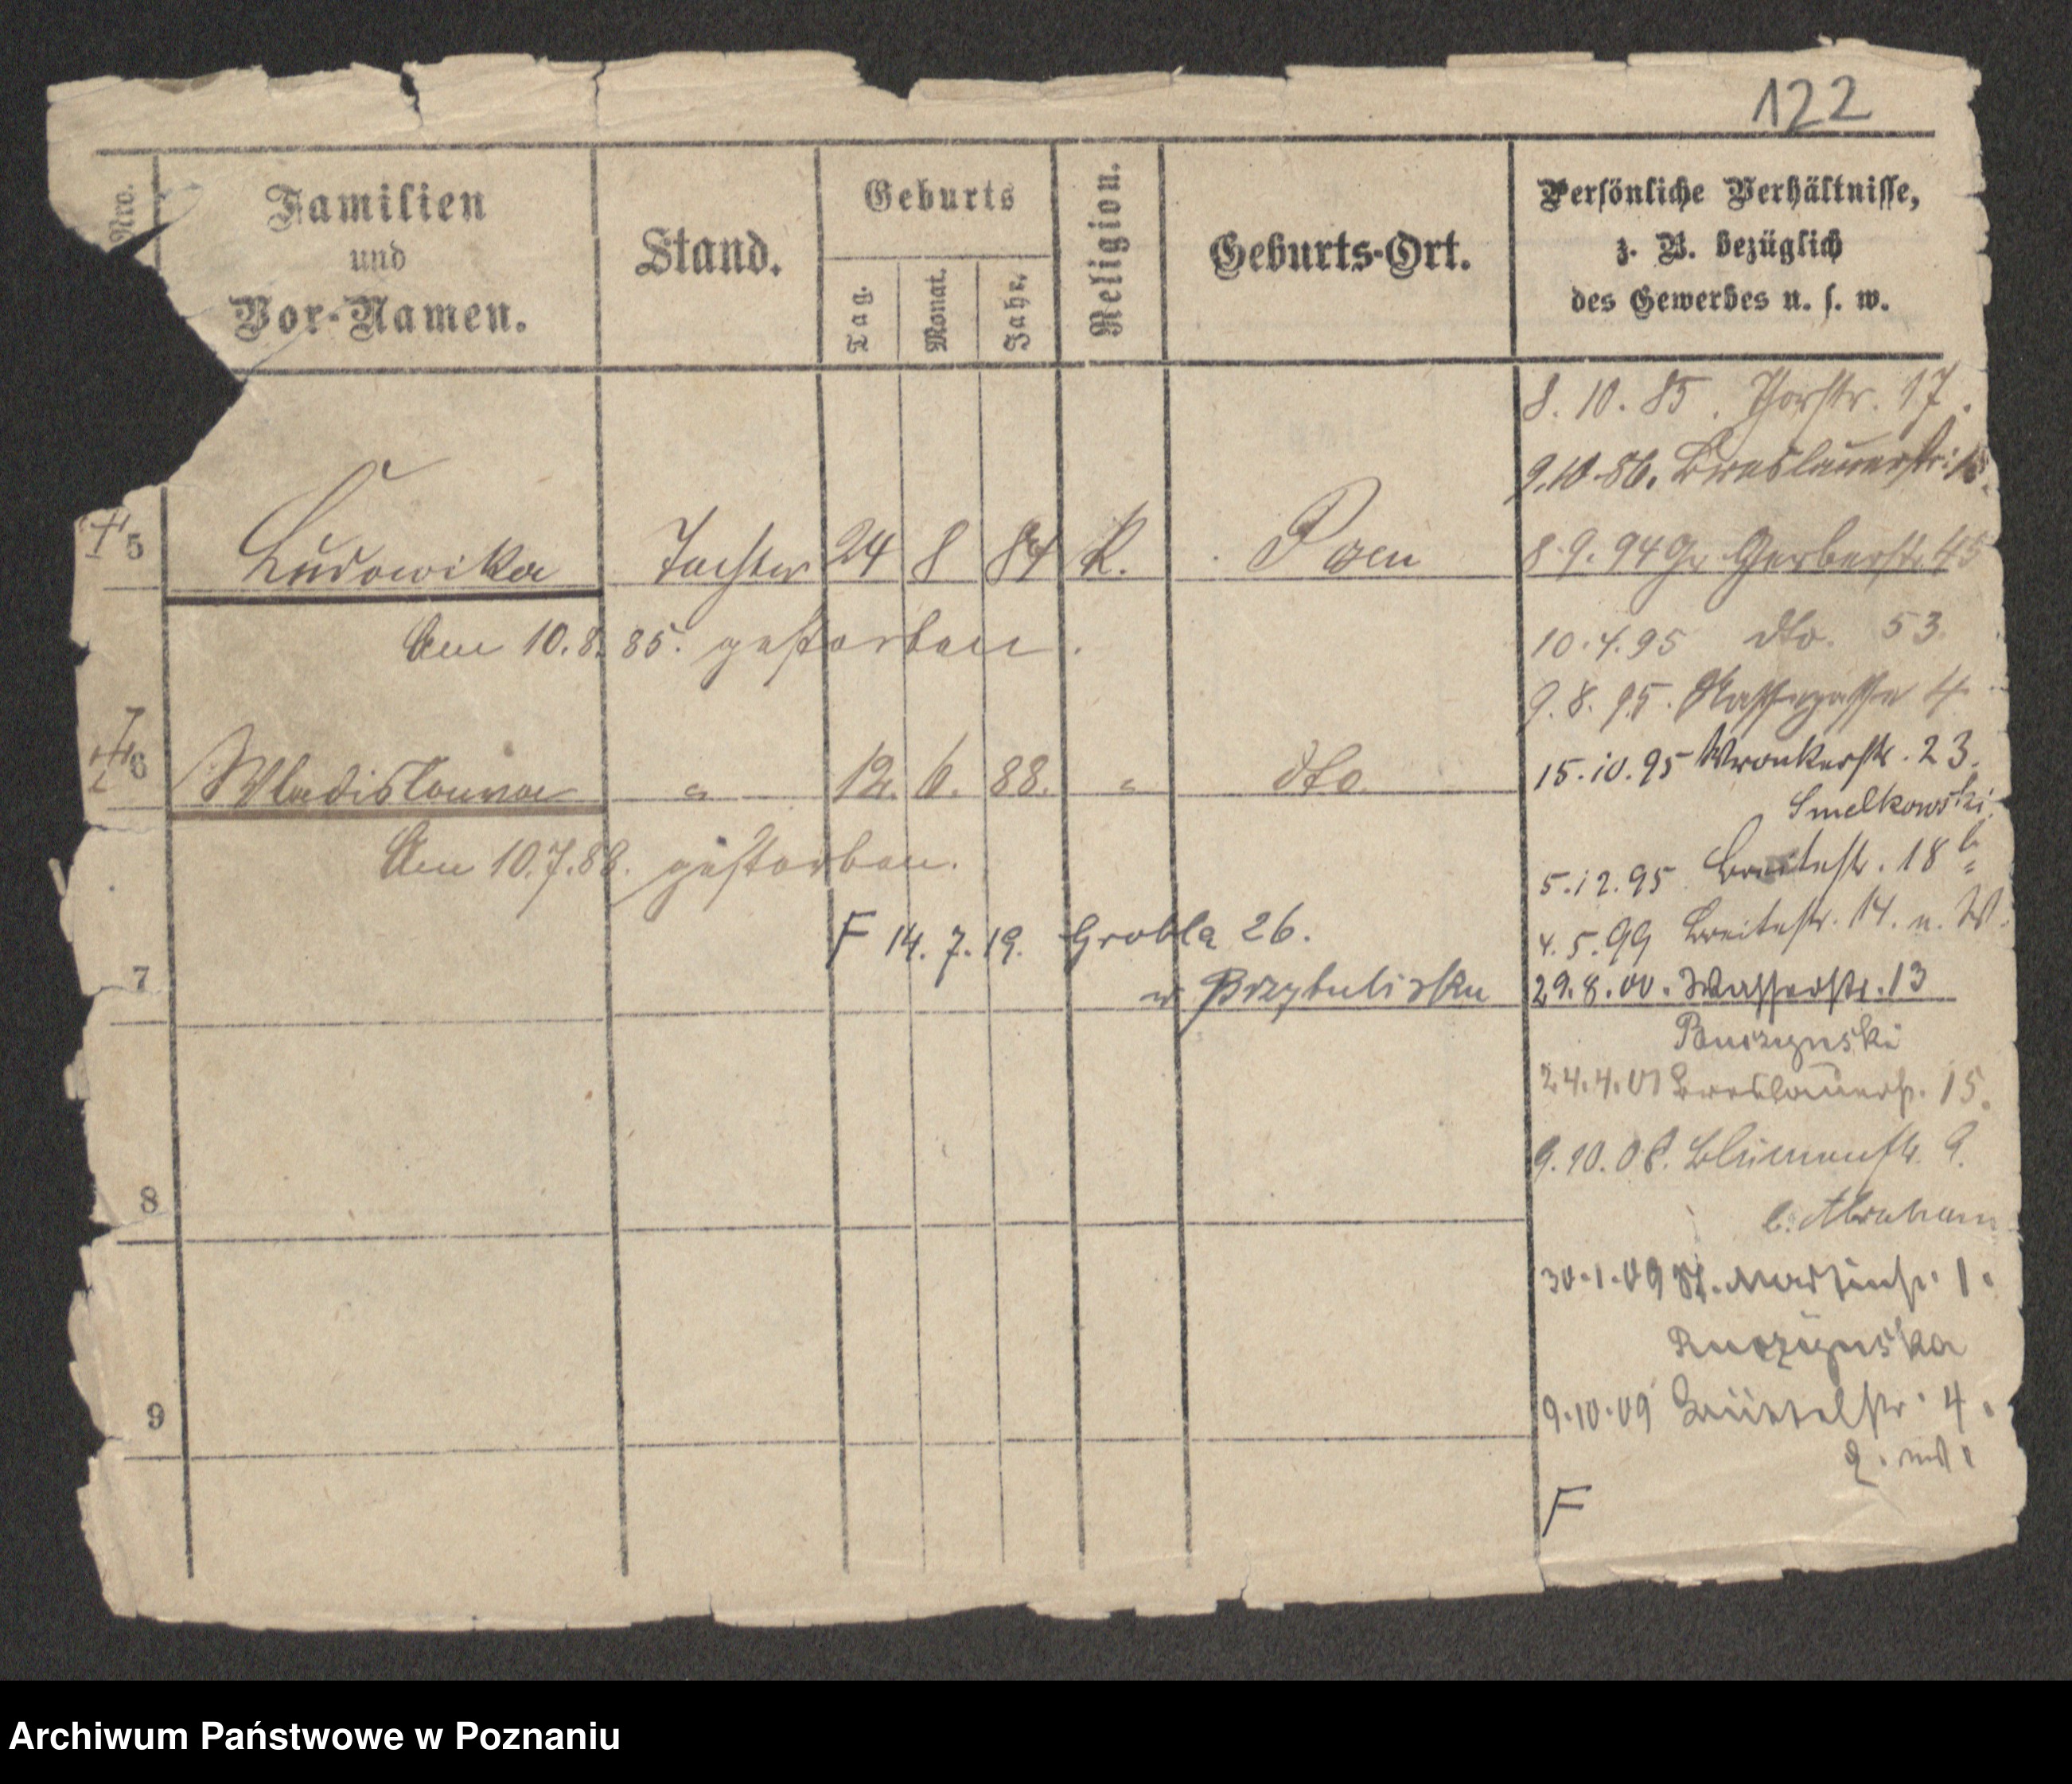 122
Nro.
Familien
und
Vor-Namen.
Stand.
Geburts
Tag.
Monat.
Jahr.
Religion.
Geburts-Ort.
Persönliche Verhältnisse,
z. B. bezüglich
des Gewerbes u. s. w.
8. 10. 85. Thorstr. 17.
9.10.86. Breslauerstr: 15.
5 Ludowika Tochter 24 8 84 K. Posen
8.9.94 Gr. Gerberstr. 45
Am 10.8. 85. gestorben.
10.4.95 dto. 53
9.8.95. 4
15.10.95 Wronkerstr. 23.
Smelkowski
6 Wladislawa " 12. 6. 88. " dto.
Am 10.7.88. gestorben.
5.12.95 Breitestr. 18 b
4.5.99 Breitestr. 14. n. W.
F 14. 7. 19. Grobla 26.
w Przytulisku
7
29.8.00. Wasserstr. 13
24.4.01 Breslauerstr. 15.
9.10.08. Blumenstr. 9.
b. Abraham
8
30.1.09 St. Martinstr. 1.
9.10.09 Büttelstr. 4.
9
F
Archiwum Państwowe w Poznaniu